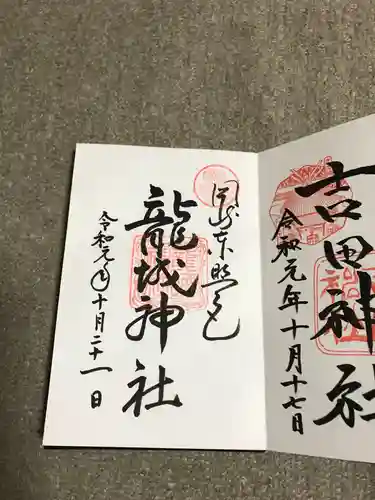 吉田神社
令和元年十月十七日
岡崎東照宮
龍城神社
令和元年十月二十一日